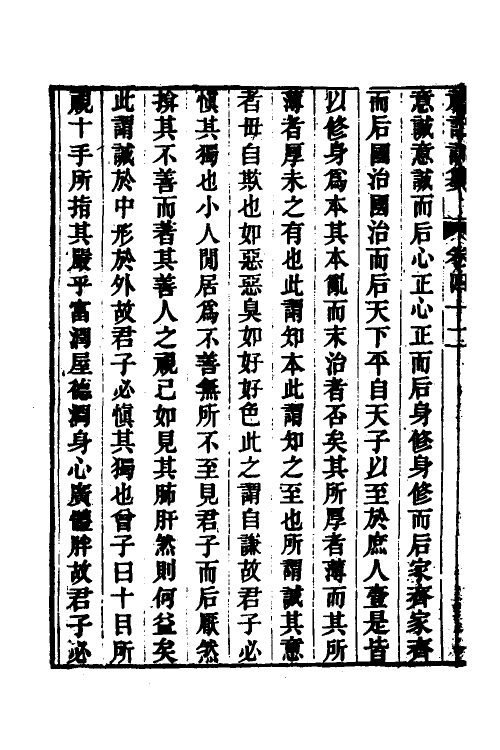 卷四 十二
意誠意誠而后心正心正而后身修身修而后家齊家齊
而后國治國治而后天下平自天子以至於庶人壹是皆
以修身爲本其本亂而末治者否矣其所厚者薄而其所
薄者厚未之有也此謂知本此謂知之至也所謂誠其意
者毋自欺也如惡惡臭如好好色此之謂自謙故君子必
愼其獨也小人閒居爲不善無所不至見君子而后厭然
揜其不善而著其善人之視己如見其肺肝然則何益矣
此謂誠於中形於外故君子必愼其獨也曾子曰十目所
視十手所指其嚴乎富潤屋德潤身心廣體胖故君子必